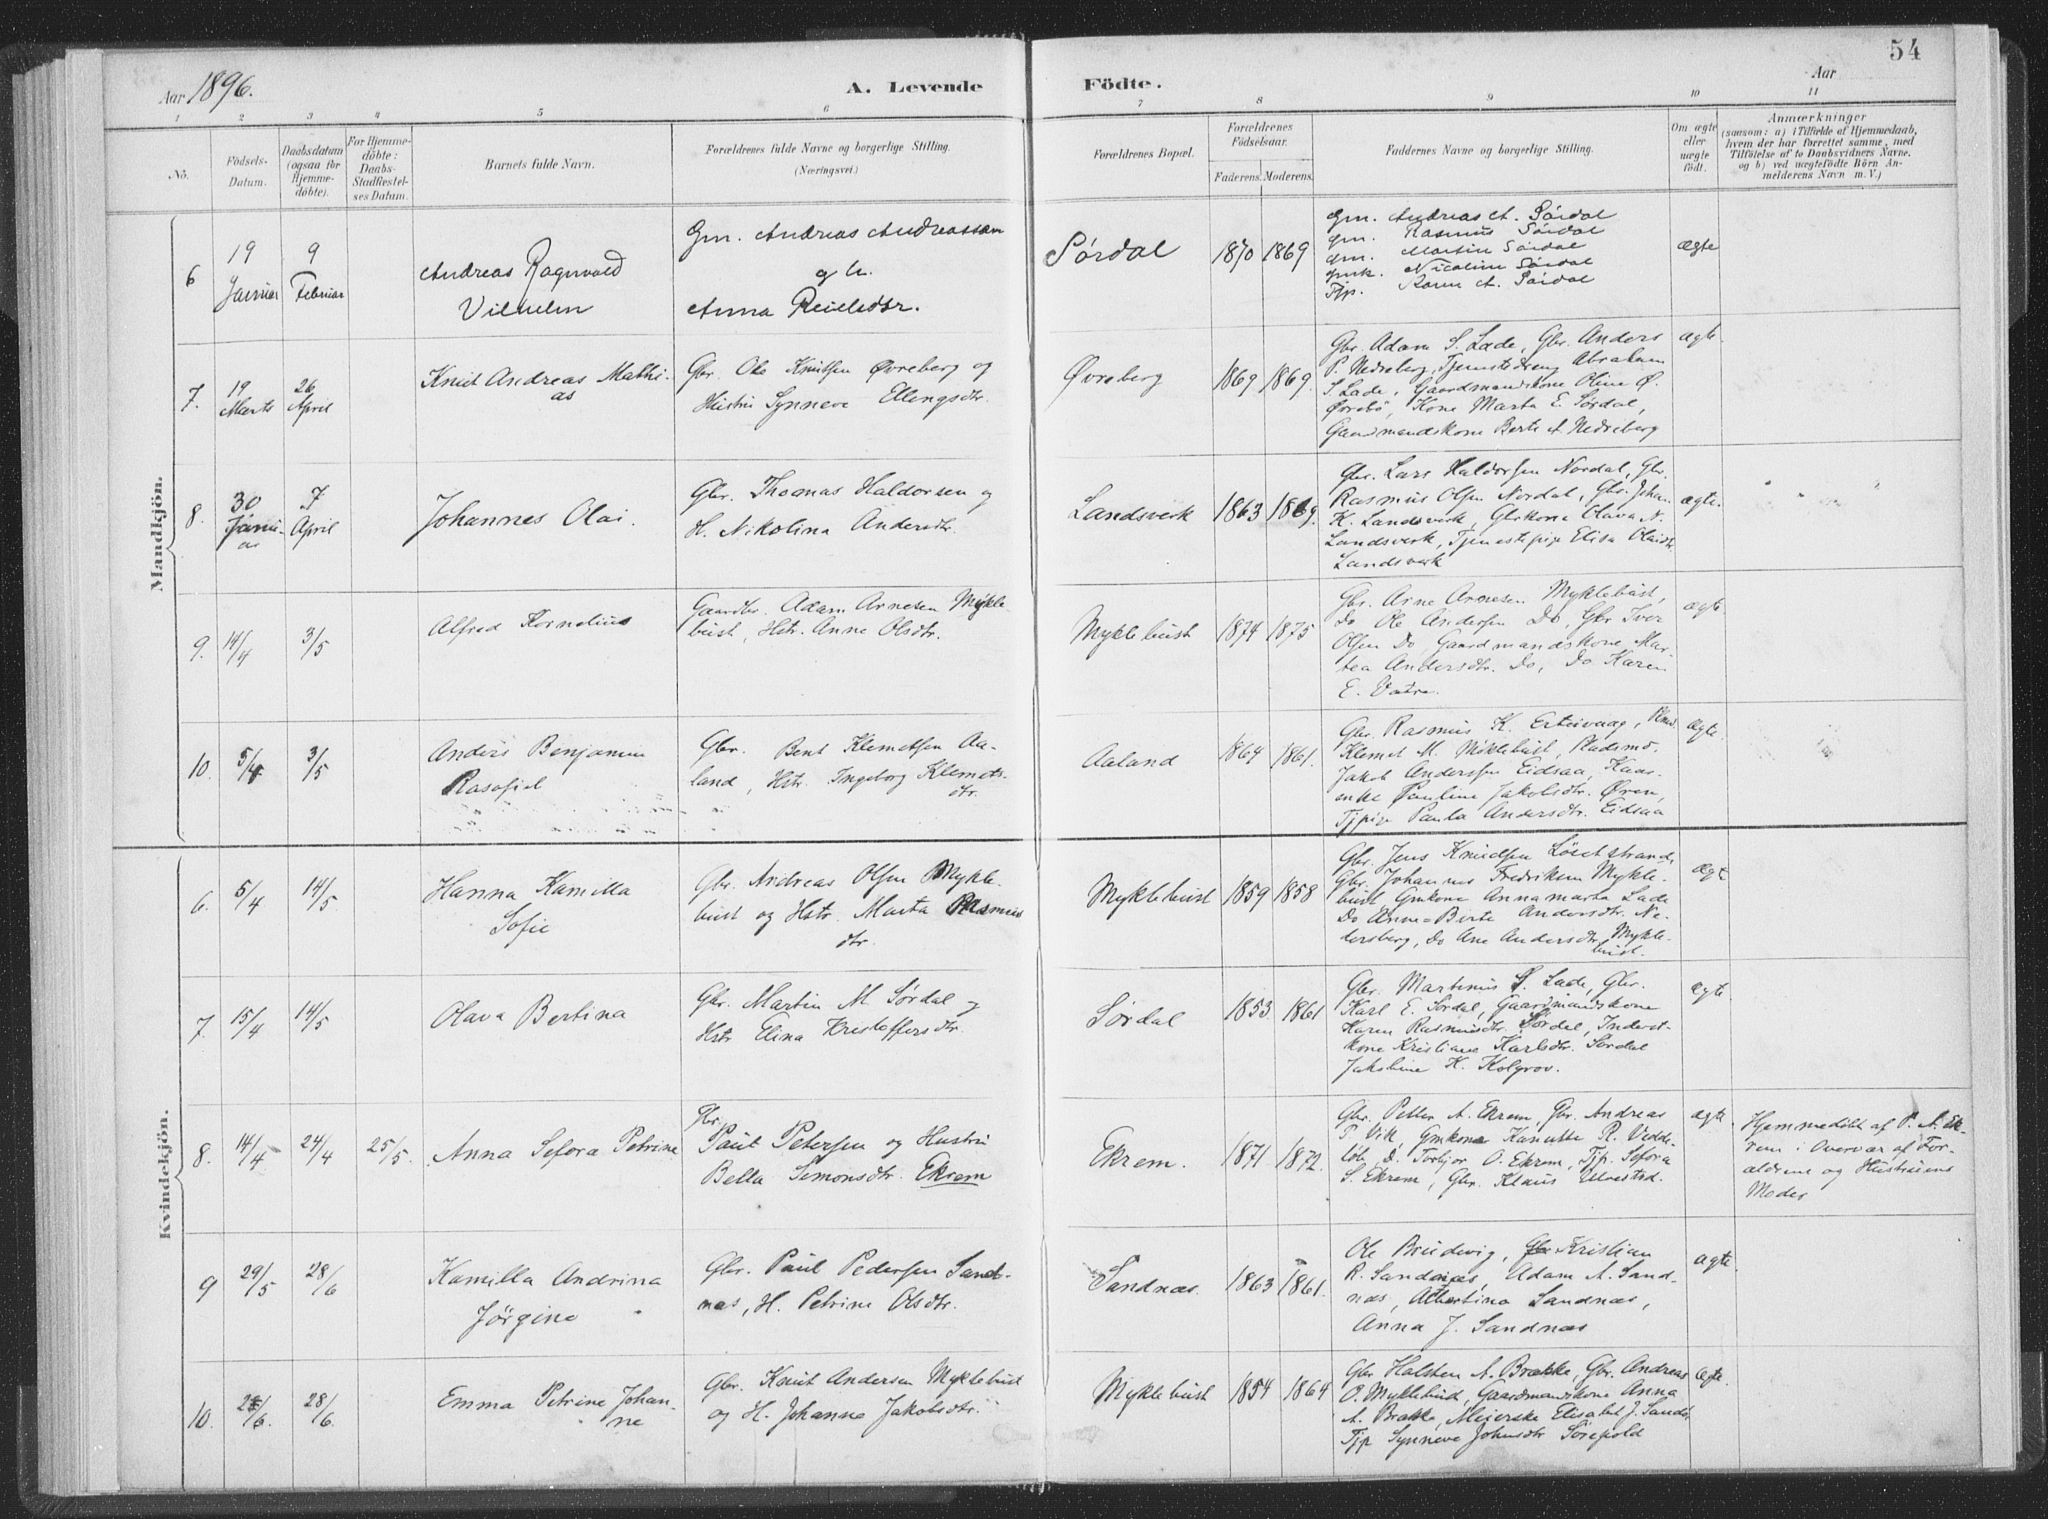 54
Aar 1896.
A. Levende Födte.
Aar
1 2 3 4 5 6 7 8 9 10 11
No.
Födsels-Datum.
Daabsdatum (ogsaa for Hjemme-döbte).
For Hjemme-döbte: Daabs-Stadfæstel-ses Datum.
Barnets fulde Navn.
Forældrenes fulde Navne og borgerlige Stilling.
(Næringsvei.)
Forældrenes Bopæl.
Forældrenes Födselsaar.
Faderens. Moderens.
Faddernes Navne og borgerlige Stilling.
Om ægte eller uægte födt.
Anmærkninger
(saasom: a) i Tilfælde af Hjemmedaab, hvem der har forrettet samme, med Tilföielse af to Daabsvidners Navne. og b) ved uægtefödte Börn An-melderens Navn m. V.)
Mandkjön.
6 19 Januar 9 Februar
Andreas Ragnvald
Vilhelm
Gm. Andreas Andreassen
og h.
Anna Reielsdtr.
Sørdal 1870 1869
Gm. Andreas A. Sørdal
Gm. Rasmus Sørdal
Gm. Martin Sørdal
Gmk. Nicoline Sørdal
Tjp. Karen A. Sørdal
ægte
7. 19 Marts 26 April
Knut Andreas Mathi-
as
Gbr. Ole Knutsen Øvreberg og
Hustru Synneve Ellingsdtr.
Øvreberg 1869 1869.
Gbr. Adam S. Lade, Gbr. Anders
P. Nedreberg, Tjenestedreng Abraham
S. Lade, Gaardmandskone Oline Ø.
Øvrebø, Kone Marta E. Sørdal,
Gaardmandskone Berte A. Nedreberg
ægte
8. 30 Janu-ar 7 April
Johannes Olai.
Gbr. Thomas Haldorsen og
H. Nikolina Andersdtr.
Landsverk 1863 1869.
Gbr. Lars Haldorsen Nordal, Gbr.
Rasmus Olsen Nordal, Gbr. Johan
K. Landsverk, Gbrkona Olava N.
Landsverk, Tjenestepige Elisa Olaidtr.
Landsverk
ægte.
9. 14/4 3/5
Alfred Kornelius
Gaardbr. Adam Arnesen Mykle-
bust, Hstr. Anne Olsdtr.
Myklebust 1874 1875
Gbr. Arne Arnesen Myklebust,
Do Ole Andersen Do, Gbr Iver
Olsen Do, Gaardmandskone Mar-
tea Andersdtr. Do, Do Karen
E. Vatne.
ægte
10. 5/4 3/5
Anders Benjamin
Rasafiel
Gbr. Bent Klemetsen Aa-
land, Hstr. Ingeborg Klemets-
dtr.
Aaland 1864 1861.
Gbr. Rasmus K. Ertesvaag,
Klemet M. Myklebust, Pladsmd.
Jakob Anderssen Eidsaa,
enke Pauline Jakobsdtr. Øren,
Tjpige Paula Andersdtr. Eidsaa
ægte.
Kvindekjön.
6. 5/4 14/5
Hanna Kamilla
Sofie
Gbr. Andreas Olsen Mykle-
bust og Hstr. Marta Rasmus
dtr.
Myklebust 1859 1858
Gbr. Jens Knudsen Løsetstrand,
Gbr. Johannes Fredriksen Mykle-
bust Gmkone Annamarta Lade
Do Anne-Berte Andersdtr. Ne-
dersberg, Do Ane Andersdtr. Mykle-
bust.
ægt
7. 15/4 14/5
Olava Bertina
Gbr. Martin M. Sørdal og
Hstr Elina Kristoffersdtr.
Sørdal 1853 1861
Gbr. Martinus S. Lade, Gbr.
Karl E. Sørdal, Gaardmandskone
Karen Rasmusdtr. Sørdal, Inderst-
kone Kristiane Karlsdtr. Sørdal
Jakobine K. Kolgrov.
ægte
8. 14/4 24/4 25/5.
Anna Sefora Petrine
Gbr.
Paul Petersen og Hustru
Bella Simonsdtr. Ekrem
Ekrem. 1871 1872.
Gbr. Petter A. Ekrem, Gbr. Andreas
P. Vik, Gmkone Kanutte R. Vedde-
løb, D. Torbjør O. Ekrem, Tjp. Sefora
S. Ekrem, Gbr. Klaus Ulvestad.
ægte
Hjemmedøbt af P. A. Ek-
rem i Overvær af For-
ældrene og Hustruens
Moder
9 29/5 28/6
Kamilla Andrina
Jørgine
Gbr. Paul Pedersen Sand-
næs, H. Petrine Olsdtr.
Sandnæs 1863 1861.
Ole Brudevig, Gbr Kristian
R. Sandnæs, Adam A. Sand-
næs, Albertina Sandnæs,
Anna J. Sandnæs
ægte.
10. 28/6
Emma Petrine Johan-
ne
Gbr. Knut Andersen Myklebust
og H. Johanne Jakobsdtr.
Myklebust 1854 1864
Gbr Halsten A. Brække, Gbr. Andreas
O. Myklebust, Gaardmandskone Anna
A. Brække, Meierske Elisabet J. Sandn.
Tjp Synneve Johnsdtr
ægte.